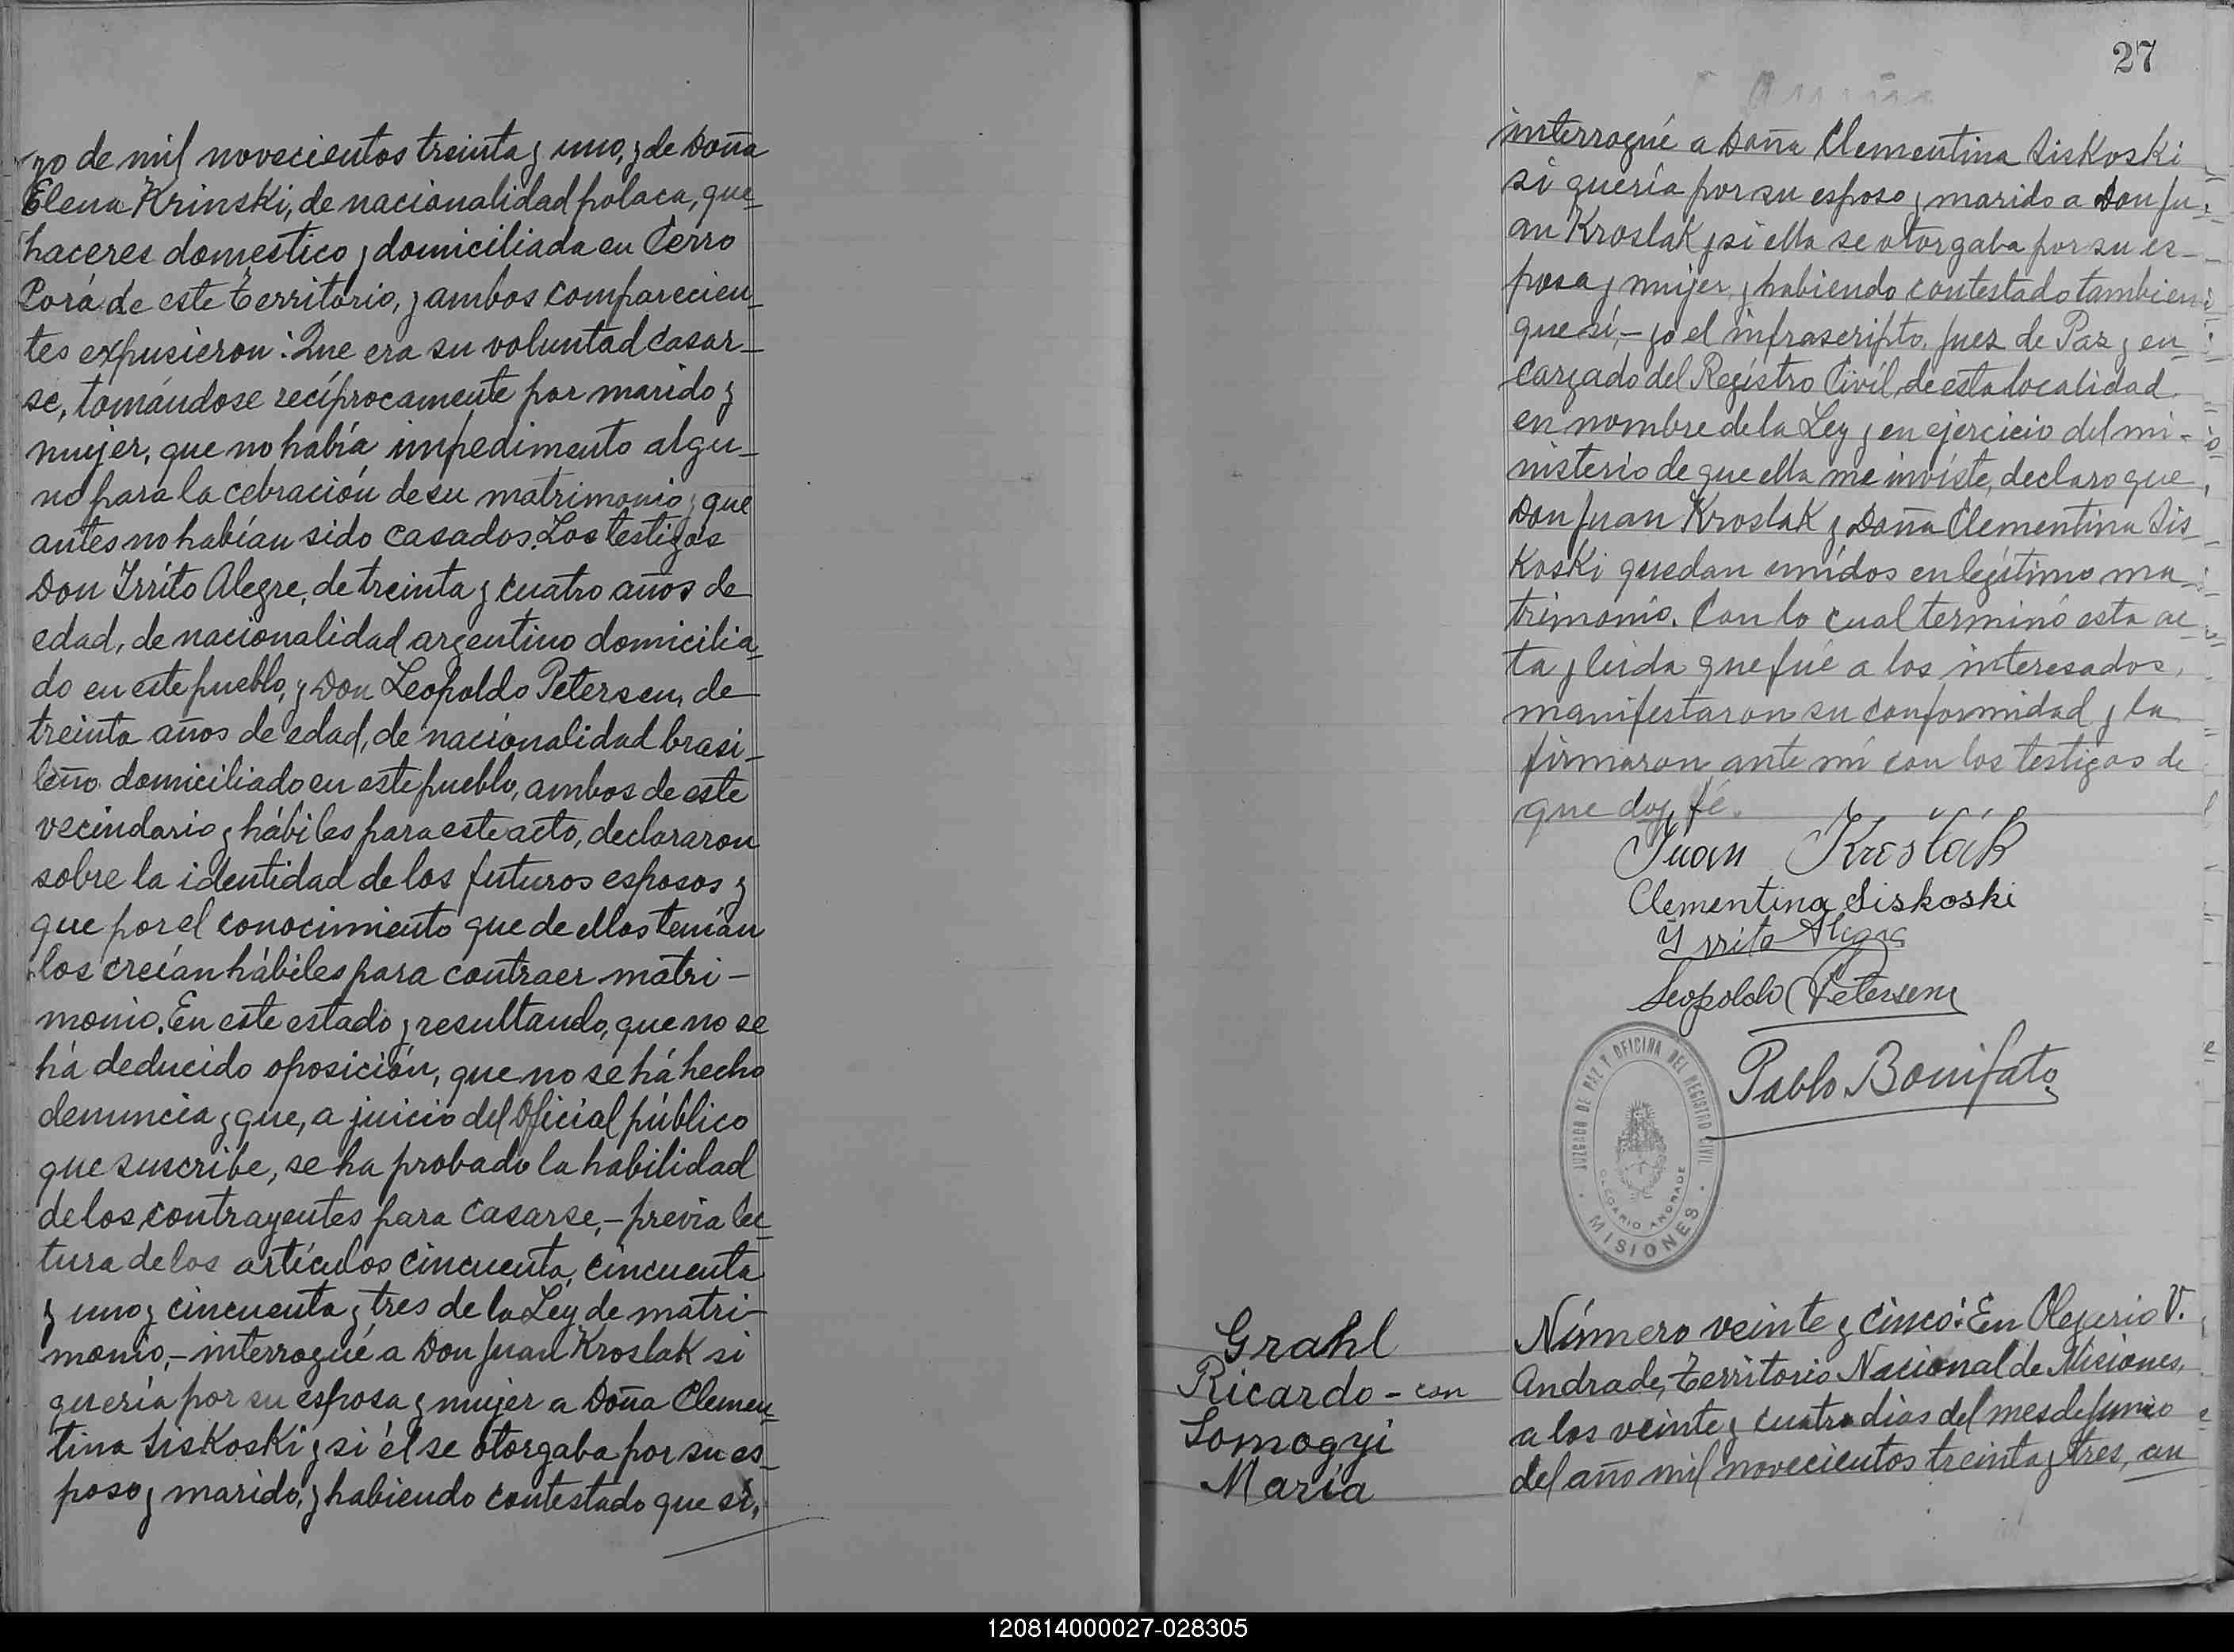 yo de mil novecientos treinta y uno, y de Doña
Elena Krinski, de nacionalidad polaca, que_
haceres domestico y domiciliada en Cerro
Corá de este territorio, y ambos comparecien_
tes expusieron: Que era su voluntad casar_
se, tomándose recíprocamente por marido y
mujer, que no había impedimento algu_
no para la cebración de su matrimonio y que
antes no habían sido casados. Los testigos
Don Irrito Alegre, de treinta y cuatro años de
edad, de nacionalidad argentino domicilia_
do en este pueblo, y Don Leopoldo Petersen, de
treinta años de edad, de nacionalidad brasi_
leño domiciliado en este pueblo, ambos de este
vecindario y hábiles para este acto, declararon
sobre la identidad de los futuros esposos y
que por el conocimiento que de ellos tenían
los creían hábiles para contraer matri-
monio. En este estado y resultando, que no se
há deducido oposición, que no se há hecho
denuncia y que, a juicio del Oficial público
que suscribe, se ha probado la habilidad
de los contrayentes para casarse,- previa lec_
tura de los artículos cincuenta, cincuenta
y uno y cincuenta y tres de la Ley de matri-
monio,- interrogué a Don Juan Kroslak si
quería por su esposa y mujer a Doña Clemen_
tina Siskoski y si él se otorgaba por su es_
poso y marido, y habiendo contestado que sí,
27
interrogué a Doña Clementina Siskoski
si quería por su esposo y marido a Don Ju_
an Kroslak y si ella se otorgaba por su es-
posa y mujer y habiendo contestado tambien
que sí,- yo el infrascripto Juez de Paz y en_
cargado del Registro Civil de esta localidad
en nombre de la Ley y en ejercicio del mi-
nisterio de que ella me inviste, declaro que
Don Juan Kroslak y Doña Clementina Sis_
koski quedan unidos en legítimo ma_
trimonio. Con lo cual terminó esta ac_
ta y leida que fué a los interesados,
manifestaron su conformidad y la
firmaron ante mí con los testigos de
que doy fé.
Juan Krošlák
Clementina Siskoski
Yrrito Alegre
Leopoldo Petersen
Pablo Bonifato
JUZGADO DE PAZ Y OFICINA DEL REGISTRO CIVIL
OLEGARIO ANDRADE
MISIONES
Grahl
Ricardo - con
Somogyi
María
Número veinte y cinco: En Olegario V.
Andrade, territorio Nacional de Misiones,
a los veinte y cuatro dias del mes de Junio
del año mil novecientos treinta y tres, an
120814000027-028305